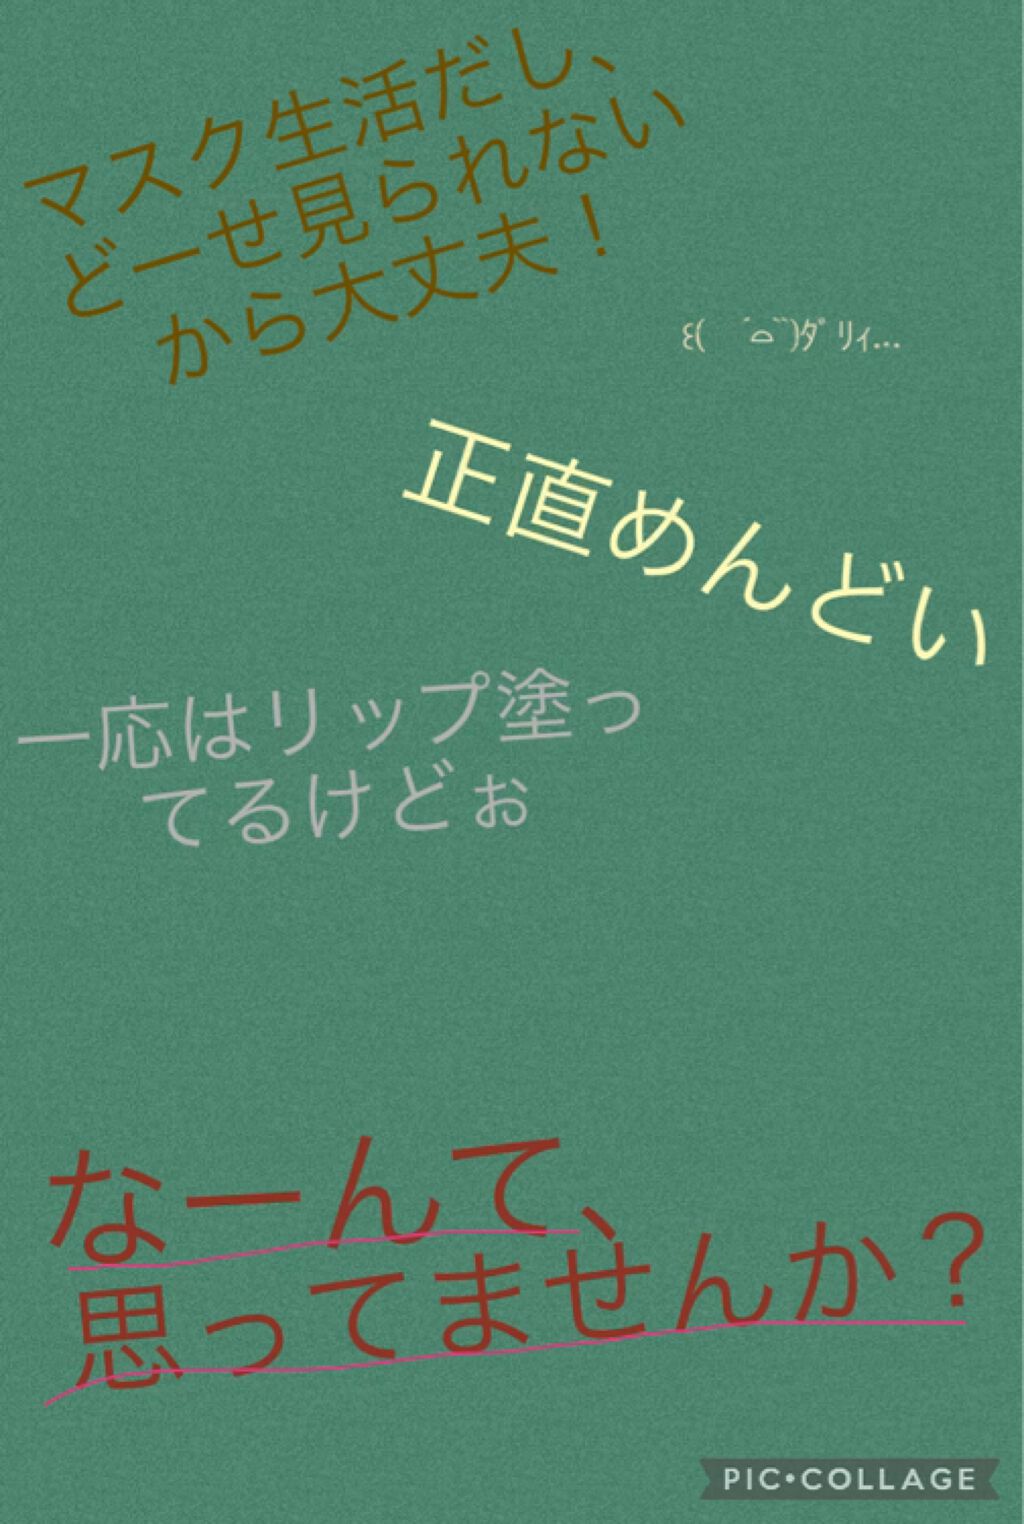 マスク生活だし、
どーせ見られない
から大丈夫！
꒰( ´⌓`)ﾀﾞﾘｨ...
正直めんどい
一応はリップ塗っ
てるけどぉ
なーんて、
思ってませんか？
PIC•COLLAGE